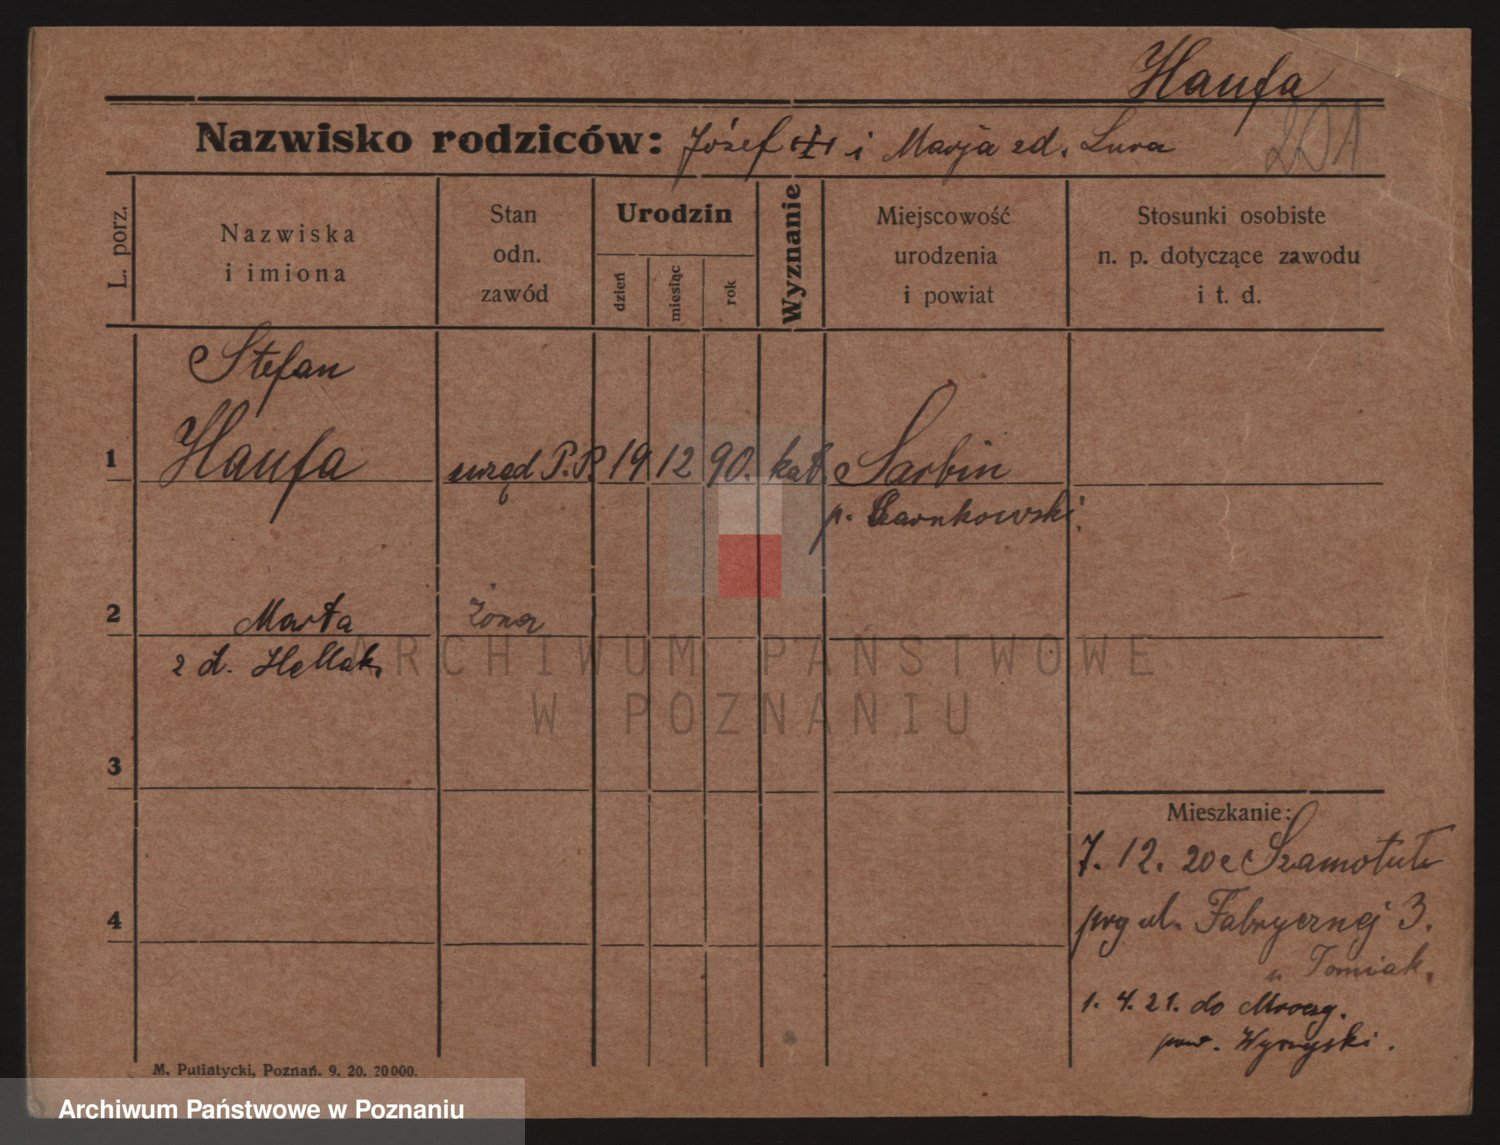 Haufa
Nazwisko rodziców: Józef i Marja zd. Lura
201
L. porz.
Nazwiska
i imiona
Stan
odn.
zawód
Urodzin
dzień
miesiąc
rok
Wyznanie
Miejscowość
urodzenia
i powiat
Stosunki osobiste
n. p. dotyczące zawodu
i t. d.
Stefan
1 Haufa urzęd P.P. 19 12 90. kat. Sarbin
p. Czarnkowski
2 Marta żona
z d. Hellak
3
Mieszkanie:
7. 12. 20 Szamotuł
4
prg ul. Fabrycznej 3.
u Tomiak.
1. 4. 21. do
pow. Wyrzyski.
M. Putiatycki, Poznań. 9. 20. 20000.
ARCHIWUM PAŃSTWOWE
W POZNANIU
Archiwum Państwowe w Poznaniu